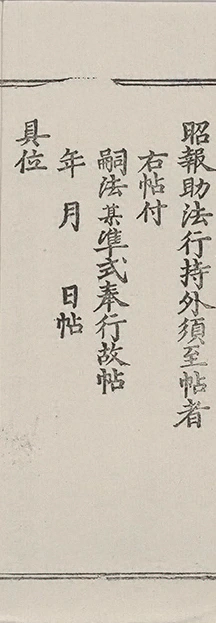 昭報助法行持外須至帖者
右帖付
嗣法某準式奉行故帖
年月日帖
具位